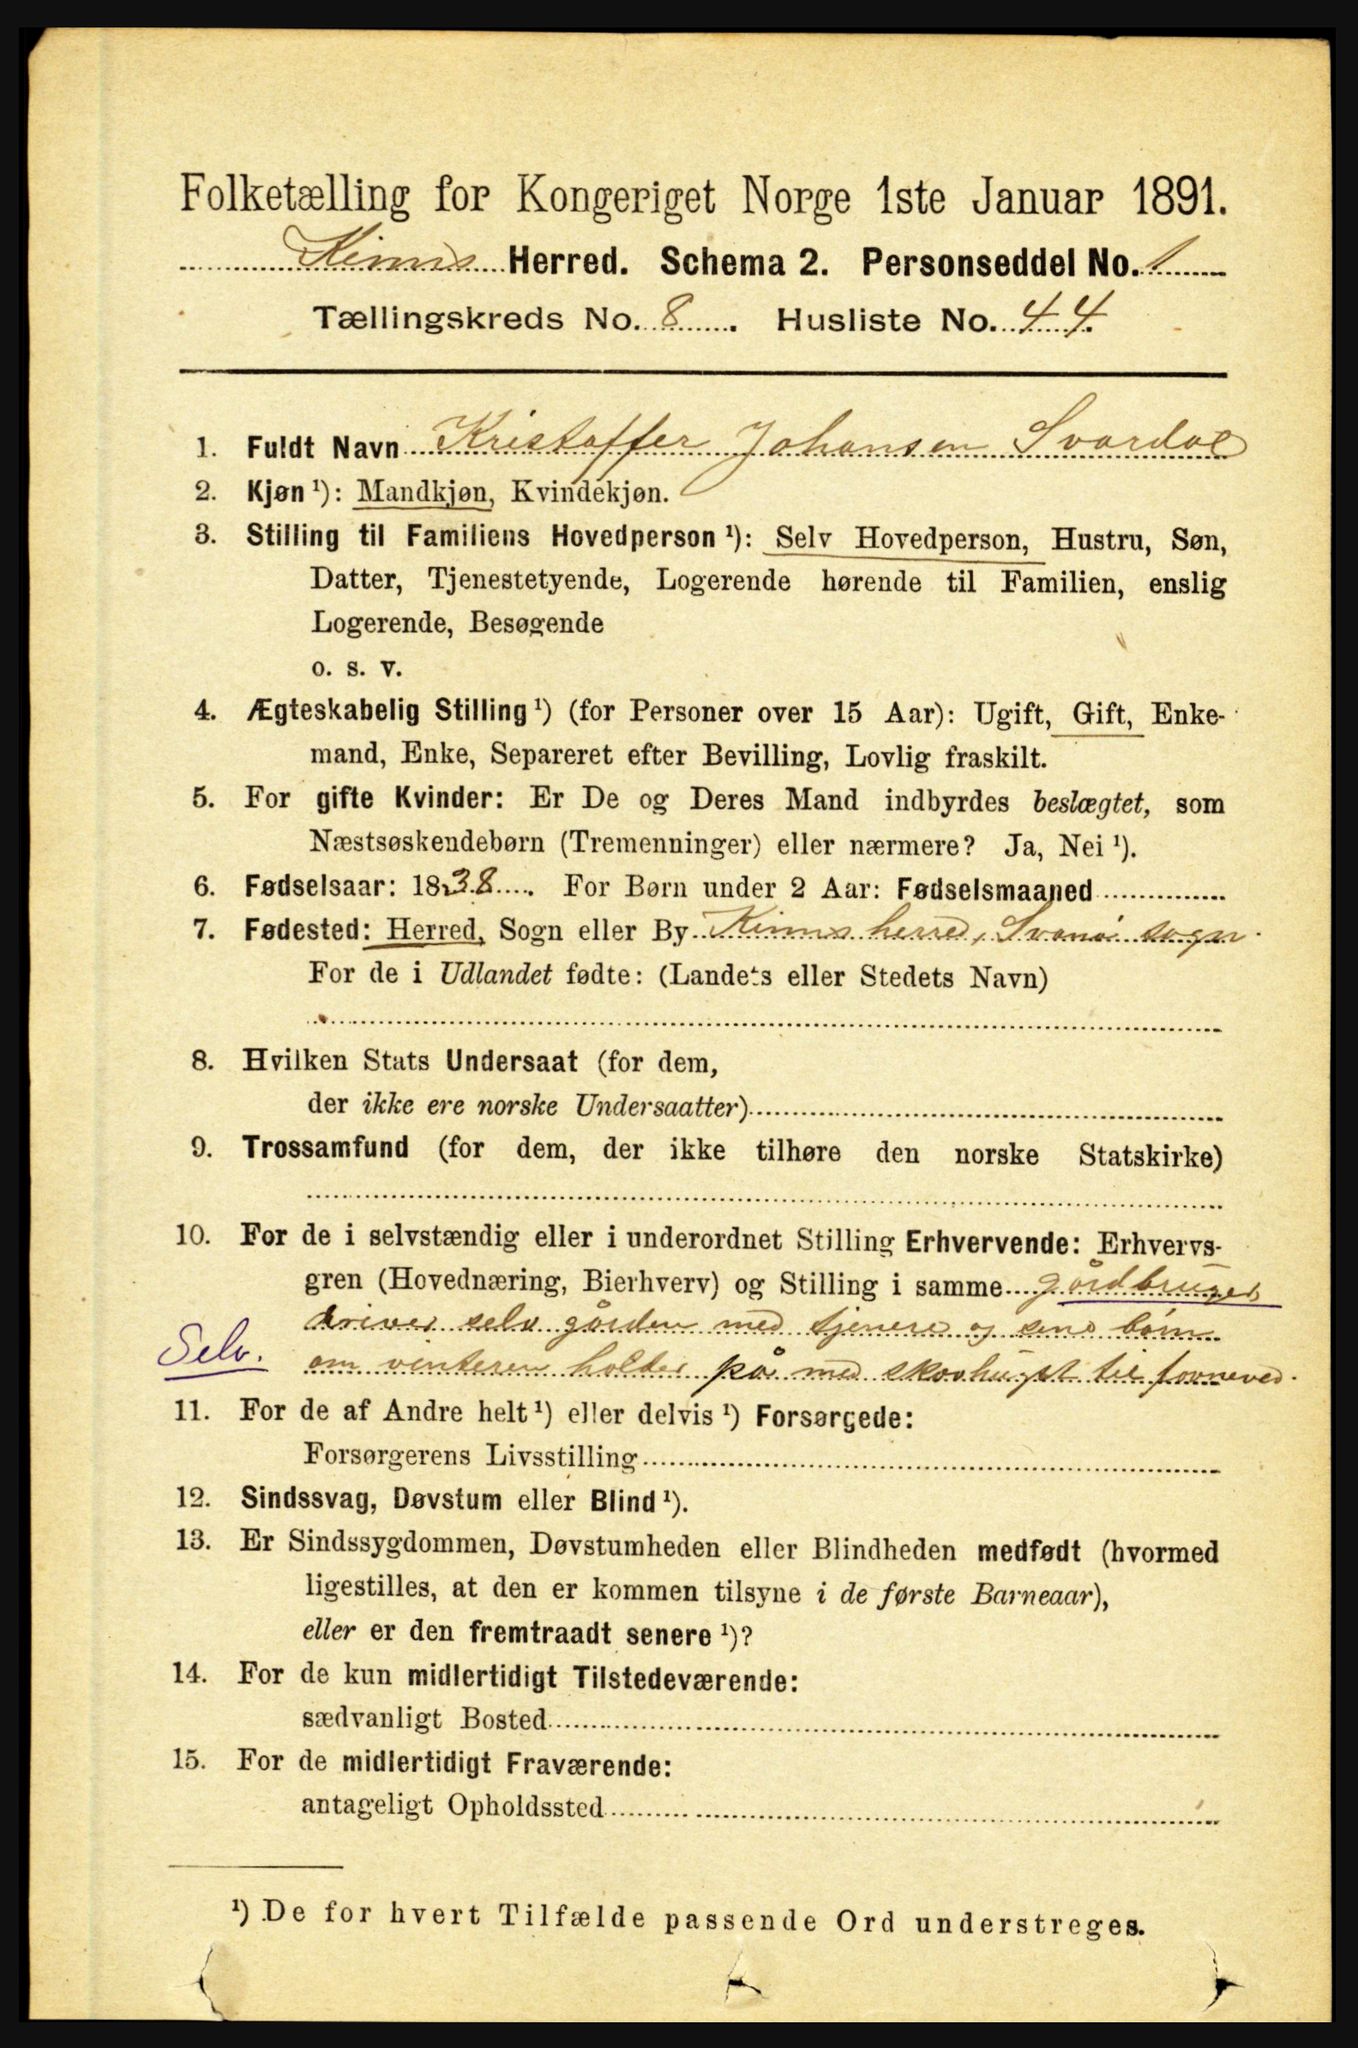 Folketælling for Kongeriget Norge 1ste Januar 1891.
Kinns Herred. Schema 2. Personseddel No. 1
Tællingskreds No. 8. Husliste No. 44.
1. Fuldt Navn Kristoffer Johansen Svardal
2. Kjøn ¹): Mandkjøn, Kvindekjøn.
3. Stilling til Familiens Hovedperson ¹): Selv Hovedperson, Hustru, Søn,
Datter, Tjenestetyende, Logerende hørende til Familien, enslig
Logerende, Besøgende
o. s. v.
4. Ægteskabelig Stilling ¹) (for Personer over 15 Aar): Ugift, Gift, Enke-
mand, Enke, Separeret efter Bevilling, Lovlig fraskilt.
5. For gifte Kvinder: Er De og Deres Mand indbyrdes beslægtet, som
Næstsøskendebørn (Tremenninger) eller nærmere? Ja, Nei ¹).
6. Fødselsaar: 1838. For Børn under 2 Aar: Fødselsmaaned
7. Fødested: Herred, Sogn eller By Kinns herred, Svanø sogn.
For de i Udlandet fødte: (Landets eller Stedets Navn)
8. Hvilken Stats Undersaat (for dem,
der ikke ere norske Undersaatter)
9. Trossamfund (for dem, der ikke tilhøre den norske Statskirke)
10. For de i selvstændig eller i underordnet Stilling Erhvervende: Erhvervs-
gren (Hovednæring, Bierhverv) og Stilling i samme gårdbruger
driver selv gården med tjenere og sine børn
Selv. om vinteren holder på med skovhugst til favneved.
11. For de af Andre helt ¹) eller delvis ¹) Forsørgede:
Forsørgerens Livsstilling
12. Sindssvag, Døvstum eller Blind ¹).
13. Er Sindssygdommen, Døvstumheden eller Blindheden medfødt (hvormed
ligestilles, at den er kommen tilsyne i de første Barneaar),
eller er den fremtraadt senere ¹)?
14. For de kun midlertidigt Tilstedeværende:
sædvanligt Bosted
15. For de midlertidigt Fraværende:
antageligt Opholdssted
¹) De for hvert Tilfælde passende Ord understreges.